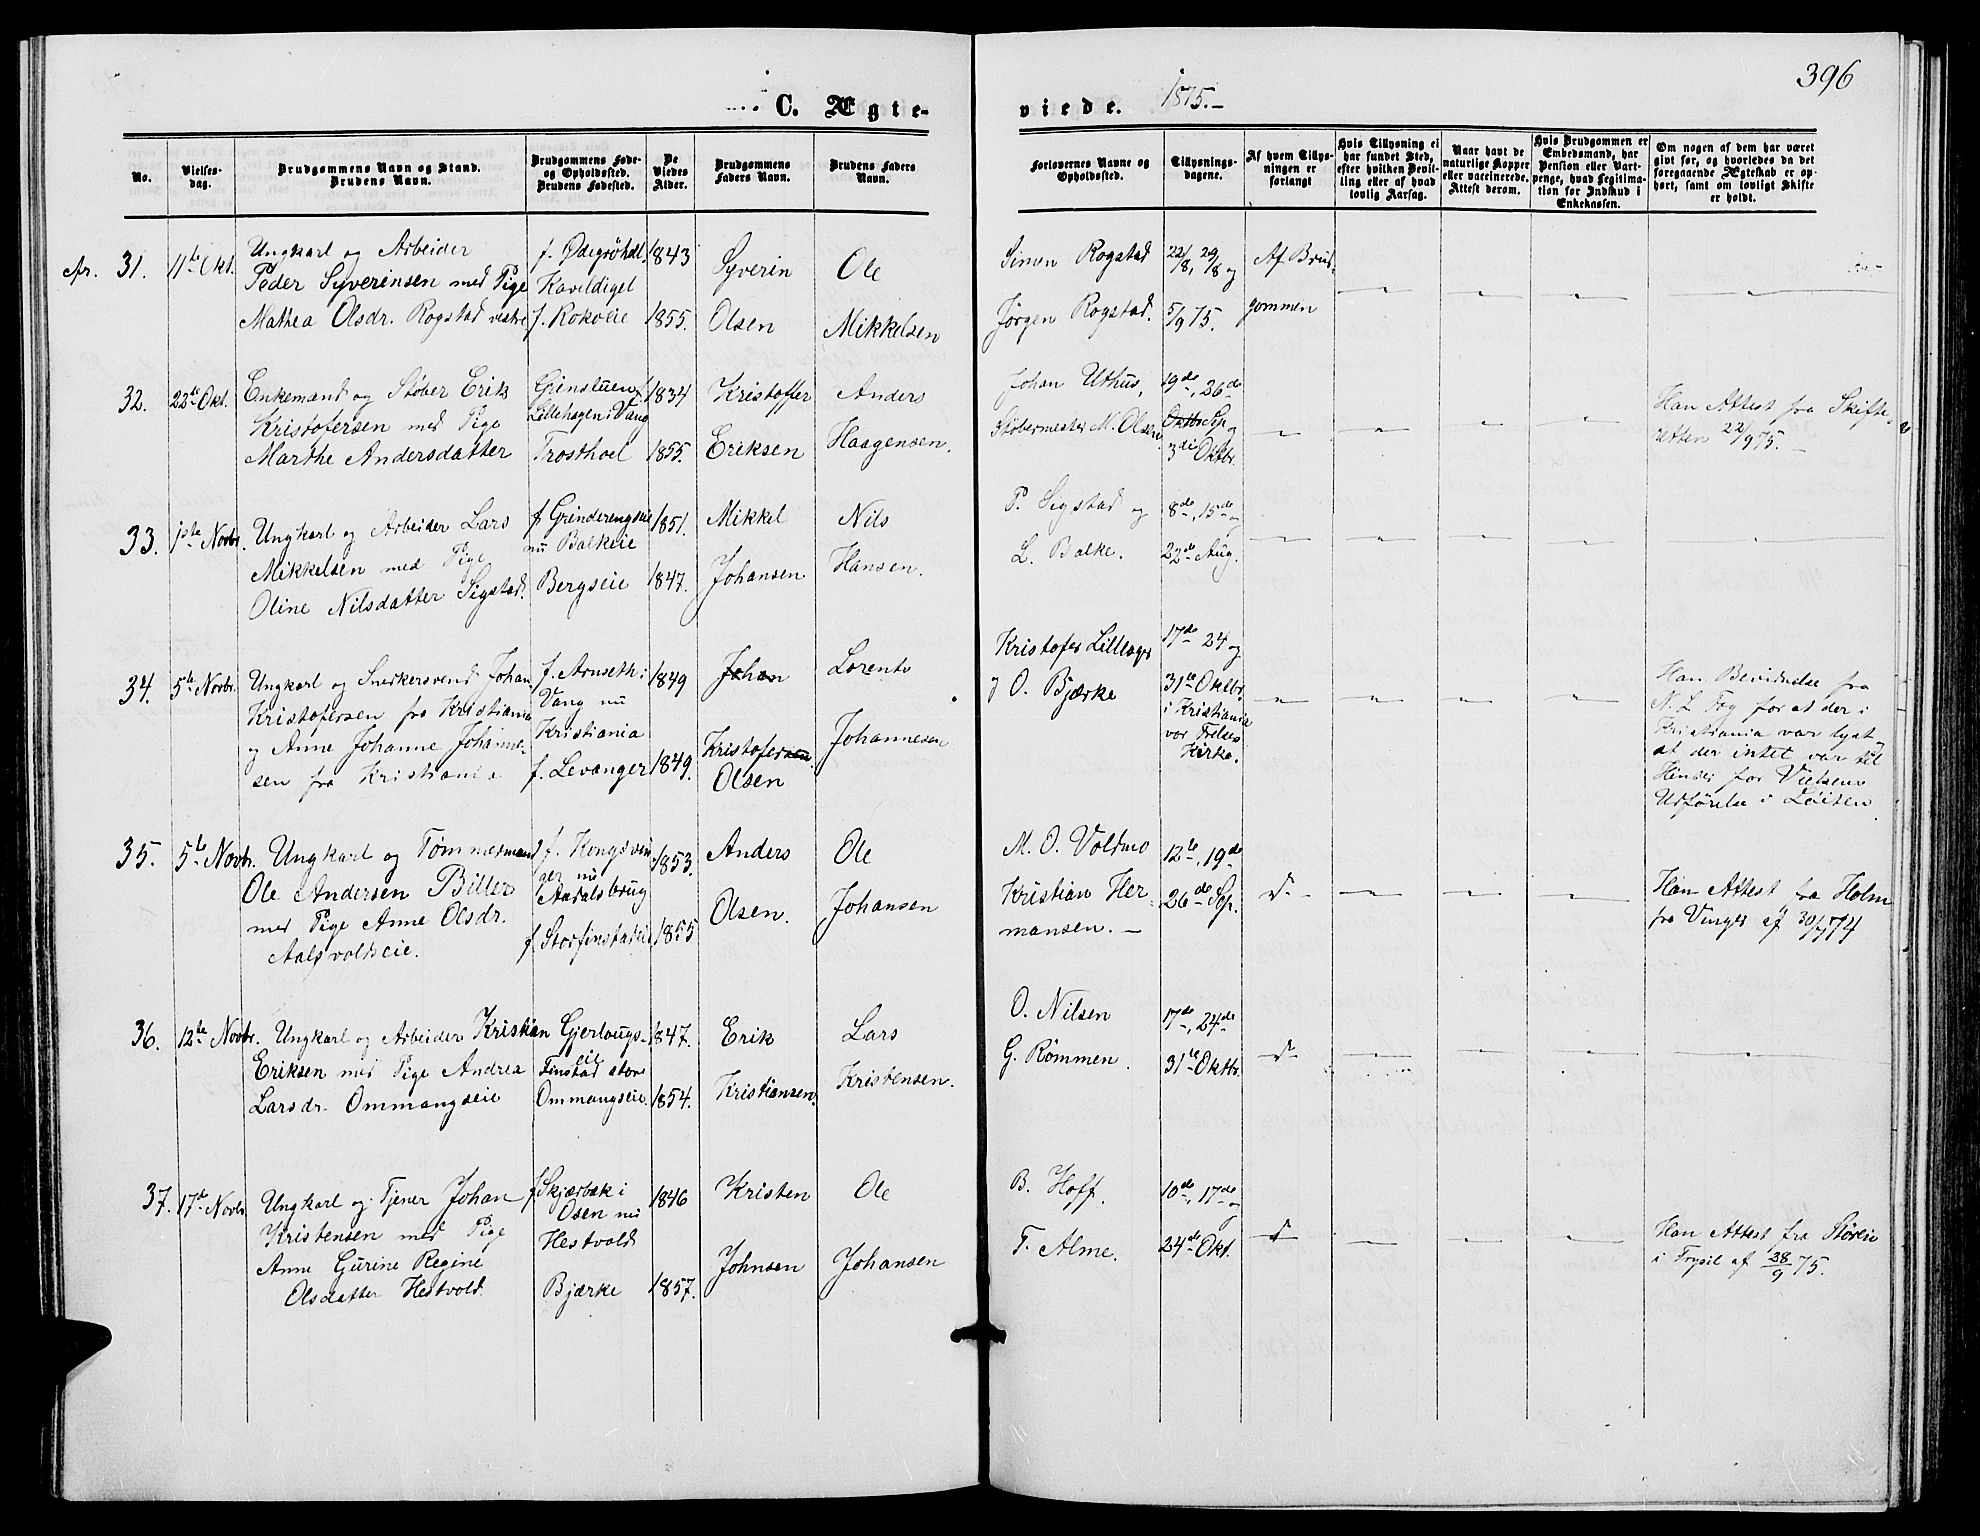 396
C. Ægte-
viede. 1875.-
No.
Vielses-
dag.
Brudgommens Navn og Stand.
Brudens Navn.
Brudgommens Føde-
og Opholdssted.
Brudens Fødested.
De
Viedes
Alder.
Brudgommens
Faders Navn.
Brudens Faders
Navn.
Forlovernes Navne og
Opholdssted.
Tillysnings-
dagene.
Af hvem Tillys-
ningen er
forlangt
Hvis Tillysning ei
har fundet Sted,
efter hvilken Bevil-
ling eller af hvad
lovlig Aarsag.
Naar havt de
naturlige Kopper
eller vaccinerede.
Attest derom.
Hvis Brudgommen er
Embedsmand, har
Pension eller Vart-
penge, hvad Legitima-
tion for Indskud i
Enkekassen.
Om nogen af dem har været
givt før, og hvorledes da det
foregaaende Ægteskab er op-
hørt, samt om lovligt Skifte
er holdt.
31. 11te Okt.
Ungkarl og Arbeider
Peder Syverinsen med Pige
Mathea Olsdr. Rogstad vestre
Kavildiget
f. Rokoeie
1843
1855.
Syverin
Olsen
Ole
Mikkelsen
Simen Rogstad
Jørgen Rogstad.
22/8, 29/8 og
5/9 75.
Af Brud-
gommen
32. 22de Okt.
Enkemand og Støber Erik
Kristofersen med Pige
Marthe Andersdatter
Grinstuen f
Lillehagen i Vang
Trosthoel
1834
1855.
Kristoffer
Eriksen
Anders
Haagensen.
Johan Uthus,
Støbermester M. Olsen
19de, 26de
Oktbr Sep. og
3die Oktbr.
Han Attest fra Skifte-
retten 22/9 75.
33. 1ste Novbr.
Ungkarl og Arbeider Lars
Mikkelsen med Pige
Oline Nilsdatter Sigstad.
f Grinderengseie
nu Balkeie
Bergseie
1851.
1847.
Mikkel
Johansen
Nils
Hansen.
P. Sigstad og
L. Balke.
8de, 15de og
22de Aug.
34. 5te Novbr.
Ungkarl og Snekkersvend Johan
Kristofersen fra Kristiania
og Anne Johanne Johanne-
sen fra Kristiania
f. Arnseth i
Vang nu
Kristiania
f. Levanger
1849
1849.
Johan
Kristofersen
Olsen
Lorents
Johannesen
Kristofer Lilleager
og O. Bjærke
17de 24 og
31te Oktbr.
i Kristiania
vor Frelses
Kirke.
Han Bevidnelse fra
N. L. Fog for at der i
Kristiania var lyst og
at der intet var til
Hinder for Vielsens
Udførelse i Løiten
35. 5te Novbr.
Ungkarl og Tømmermand
Ole Andersen Biller
med Pige Anne Olsdr.
Aalsvoldseie.
f. Kongsvin-
ger nu
Aadalsbrug
f. Storfinstadeie
1853.
1855
Anders
Olsen.
Ole
Johansen
M. O. Voldmo
Kristian Her-
mansen. -
12te, 19de
26de Sep.
Han Attest fra Holm
fra Vinger af 30/7 74
36. 12te Novbr.
Ungkarl og Arbeider Kristian
Eriksen med Pige Andrea
Larsdr. Ommangseie
Gjerlaugs-
eie
Finstad store
Ommangseie.
1847.
1854.
Erik
Kristiansen.
Lars
Kristensen.
O. Nilsen
G. Rømmen.
17de, 24de
31te Oktbr.
37. 17de Novbr.
Ungkarl og Tjener Johan
Kristensen med Pige
Anne Gurine Regine
Olsdatter Hestvold
f Skjærbæk i
Osen nu
Hestvold
Bjærke
1846
1857.
Kristen
Johnsen
Ole
Johansen
B. Hoff.
T. Alme.
10de, 17de og
24de Okt.
Han Attest fra Støren
i Trysil af 28/9 75.